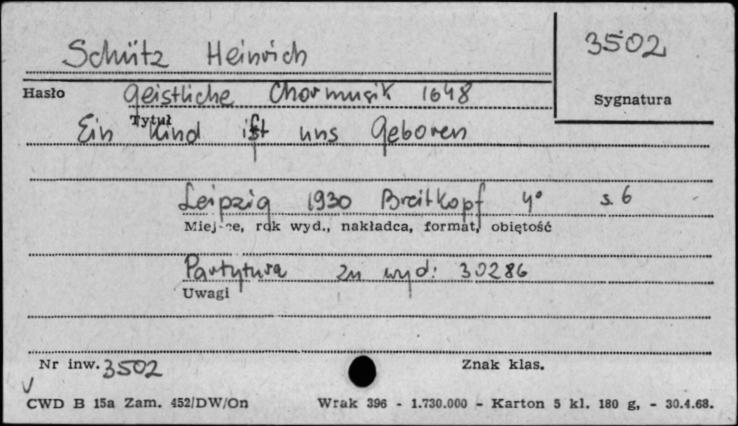 Schütz Heinrich
3502
Hasło
Geistliche Chormusik 1648
Sygnatura
Tytuł
Ein Kind ist uns Geboren
Leipzig 1930 Breitkopf 4° s. 6
Miejsce, rok wyd., nakładca, format, objętość
Partytura zn wyd: 30286
Uwagi
Nr inw. 3502
Znak klas.
CWD B 15a Zam. 452/DW/On Wrak 396 - 1.730.000 - Karton 5 kl. 180 g. - 30.4.68.